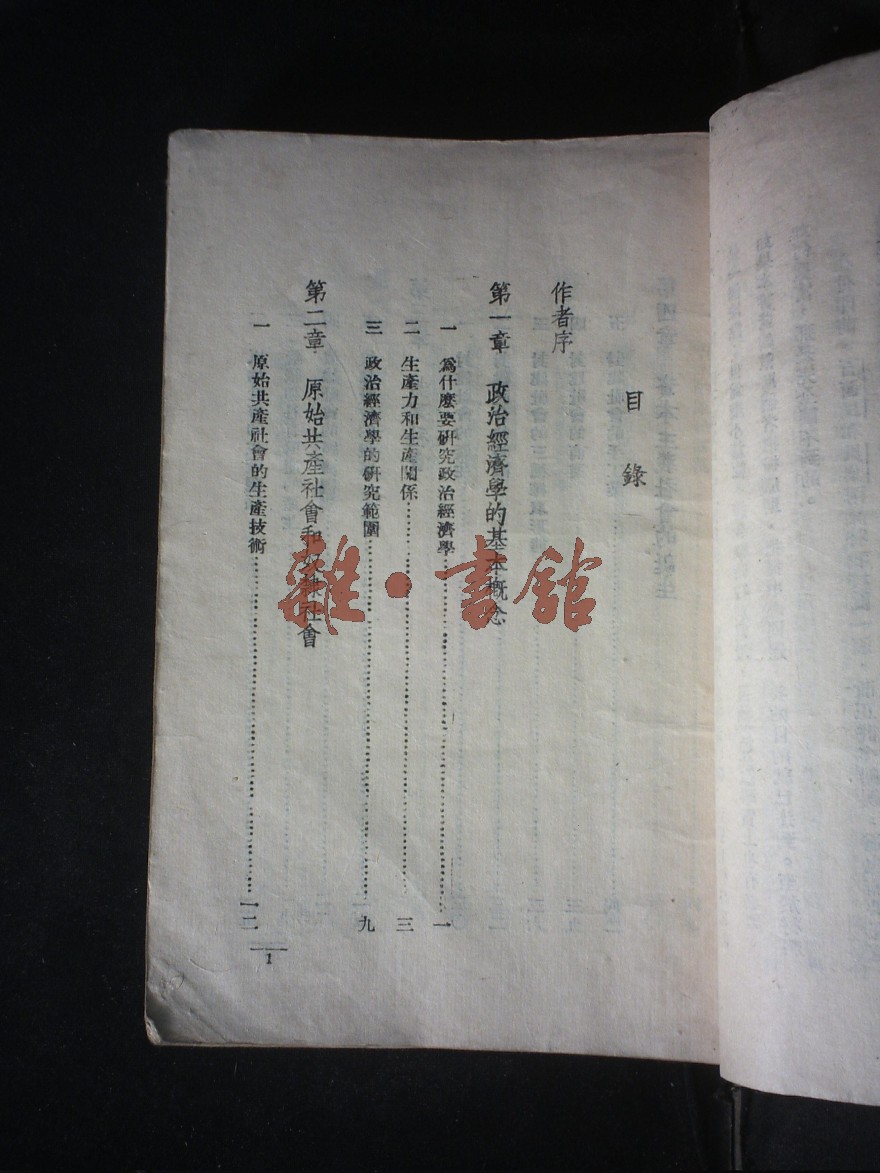 目錄
作者序
第一章 政治經濟學的基本概念
一 爲什麽要研究政治經濟學……一
二 生產力和生產關係……三
三 政治經濟學的研究範圍……九
第二章 原始共產社會和奴隸社會
一 原始共產社會的生產技術……一二
1
雜·書館